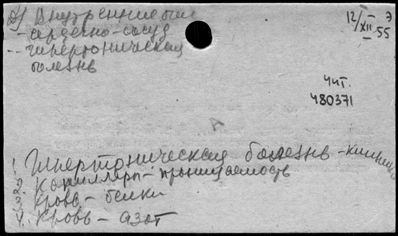 Внутренние бол
- сердечно-сосуд
- гипертоническая
болезнь
12/XII 55
Э
Чит.
480371
А
1. Гипертоническая болезнь - клиника
2. Капилляры - проницаемость
3. Кровь - белки
4. Кровь - азот